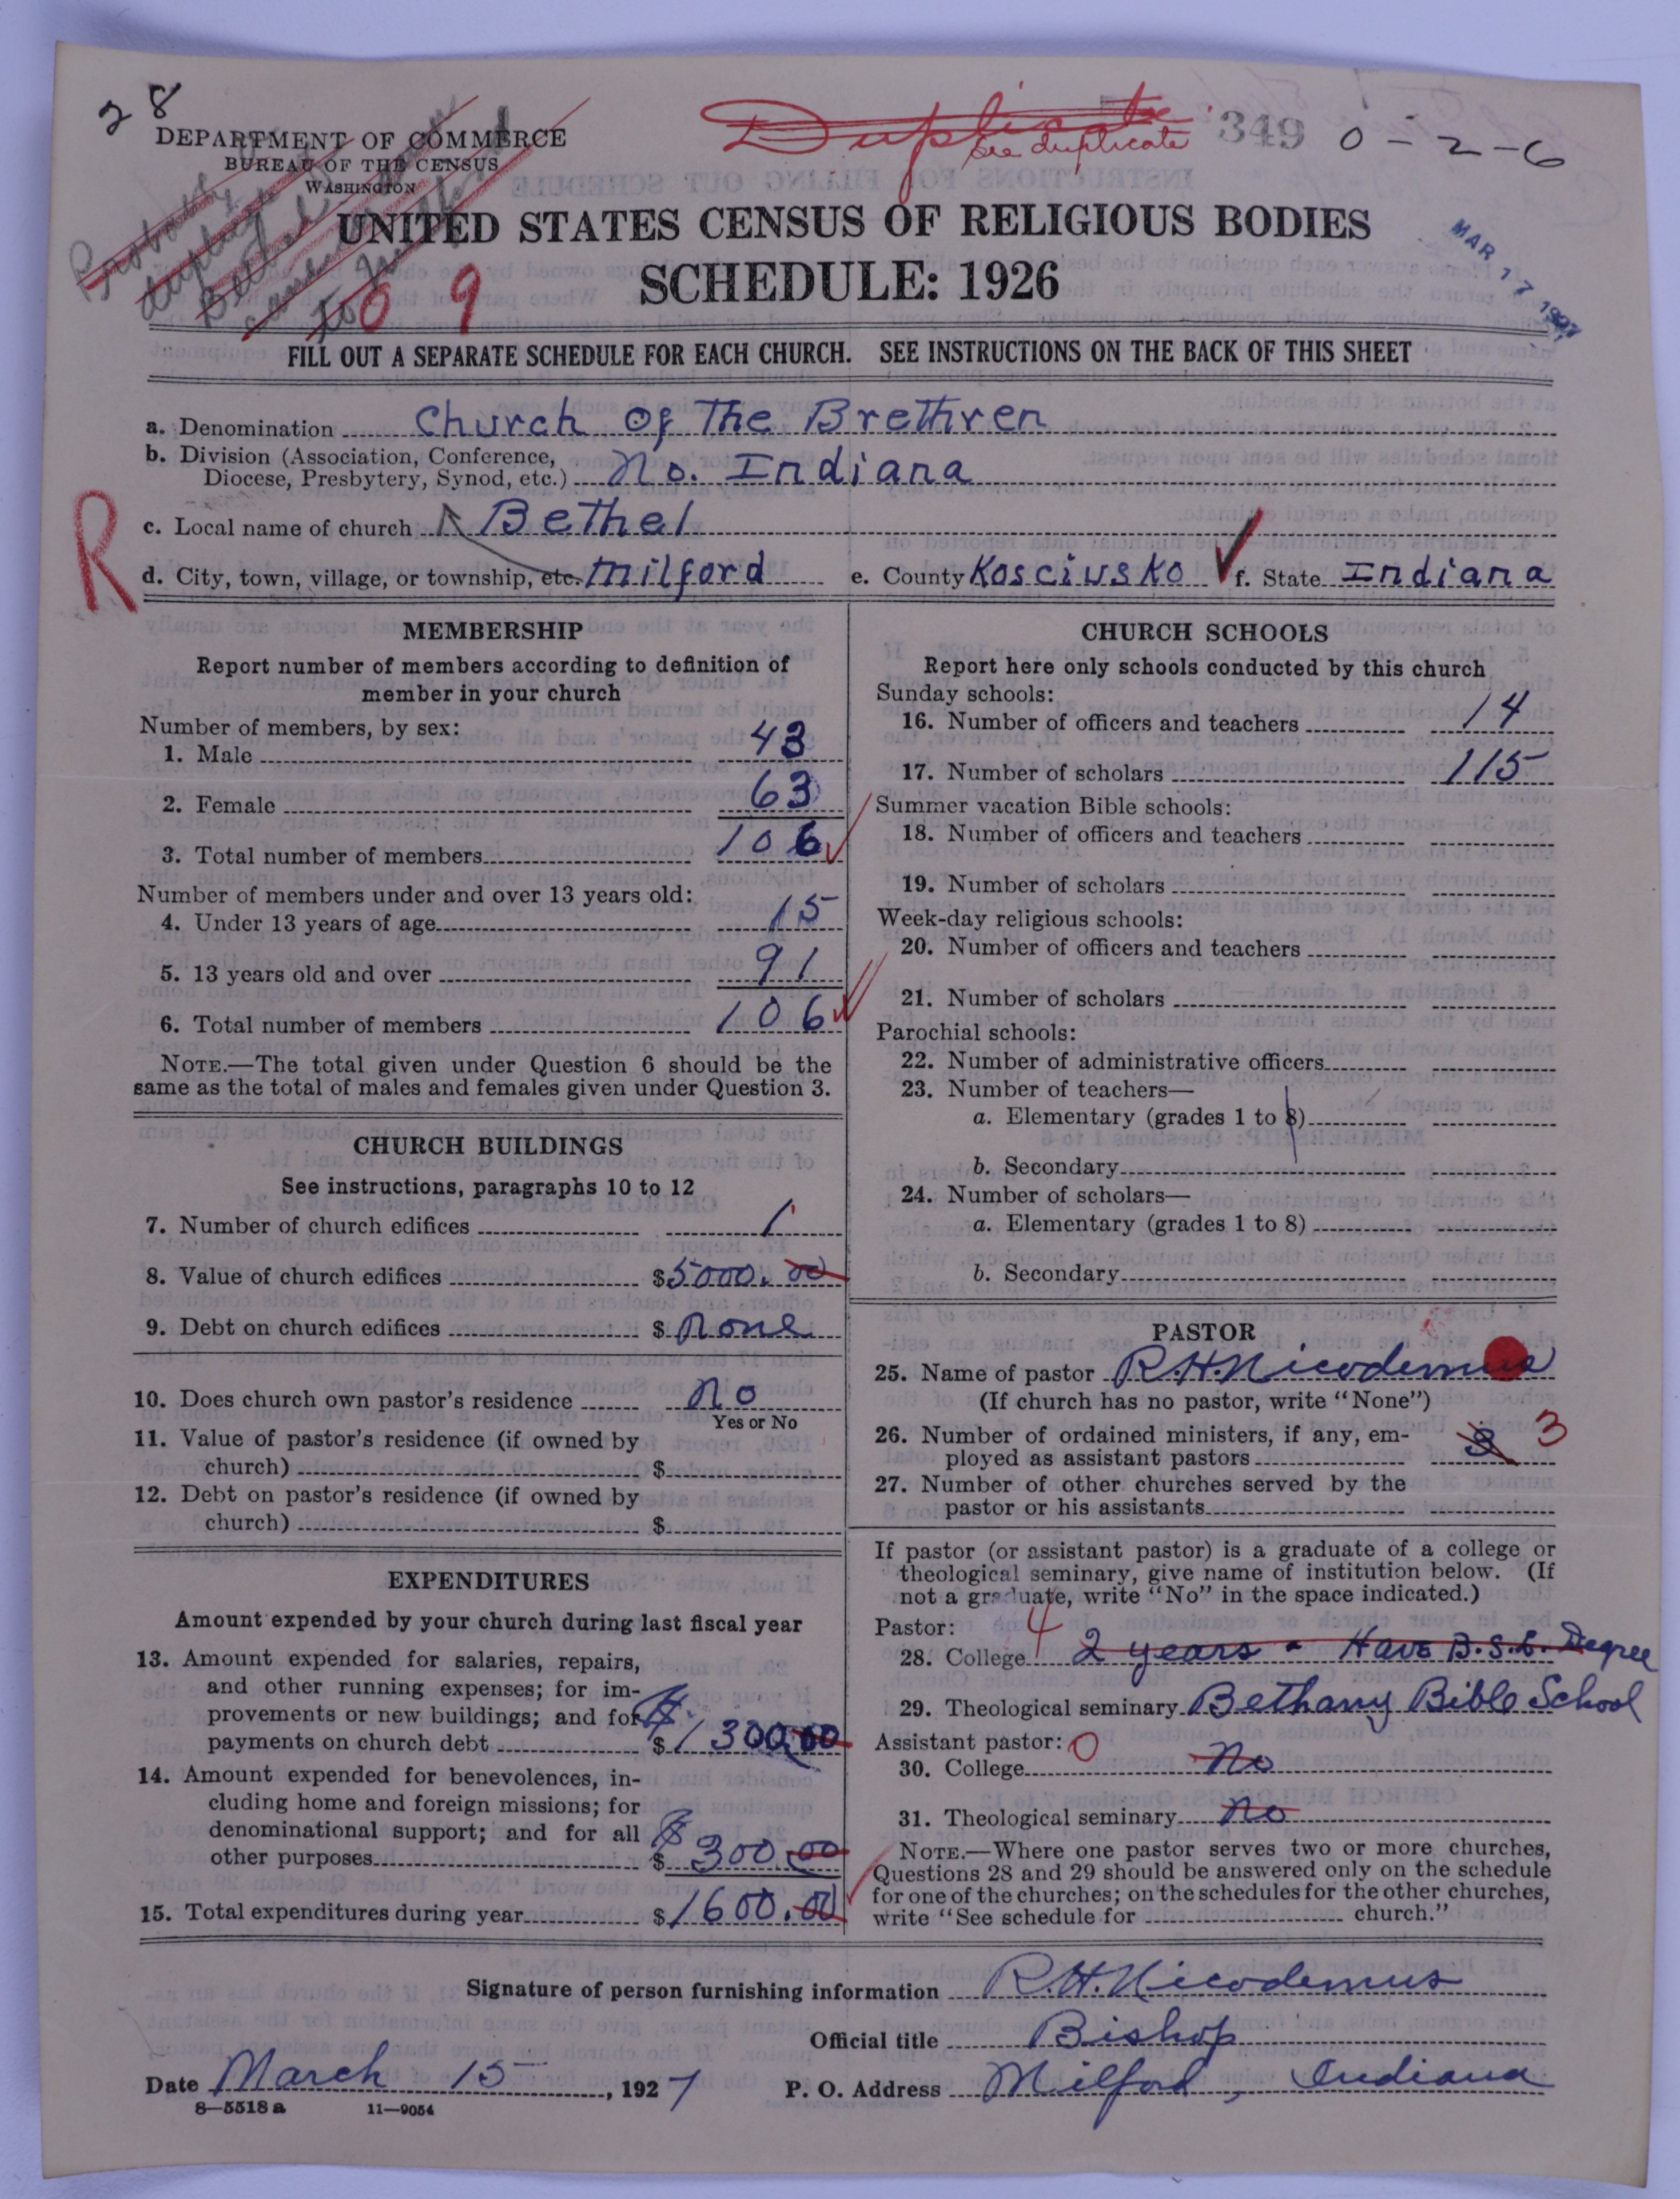 28
DEPARTMENT OF COMMERCE
BUREAU OF THE CENSUS
WASHINGTON
Duplicate
See duplicate
349 0-2-6
UNITED STATES CENSUS OF RELIGIOUS BODIES
SCHEDULE: 1926
MAR 17 1927
09
FILL OUT A SEPARATE SCHEDULE FOR EACH CHURCH. SEE INSTRUCTIONS ON THE BACK OF THIS SHEET
a. Denomination Church Of The Brethren
b. Division (Association, Conference,
Diocese, Presbytery, Synod, etc.) No. Indiana
R
c. Local name of church Bethel
d. City, town, village, or township, etc. Milford e. County Kosciusko f. State Indiana
MEMBERSHIP
Report number of members according to definition of
member in your church
Number of members, by sex:
1. Male 43
2. Female 63
3. Total number of members 106
Number of members under and over 13 years old:
4. Under 13 years of age 15
5. 13 years old and over 91
6. Total number of members 106
NOTE.—The total given under Question 6 should be the
same as the total of males and females given under Question 3.
CHURCH BUILDINGS
See instructions, paragraphs 10 to 12
7. Number of church edifices 1
8. Value of church edifices $5000.00
9. Debt on church edifices $ None
10. Does church own pastor's residence No
Yes or No
11. Value of pastor's residence (if owned by
church) $
12. Debt on pastor's residence (if owned by
church) $
EXPENDITURES
Amount expended by your church during last fiscal year
13. Amount expended for salaries, repairs,
and other running expenses; for im-
provements or new buildings; and for
payments on church debt $1300.00
14. Amount expended for benevolences, in-
cluding home and foreign missions; for
denominational support; and for all
other purposes $300.00
15. Total expenditures during year $1600.00
CHURCH SCHOOLS
Report here only schools conducted by this church
Sunday schools:
16. Number of officers and teachers 14
17. Number of scholars 115
Summer vacation Bible schools:
18. Number of officers and teachers
19. Number of scholars
Week-day religious schools:
20. Number of officers and teachers
21. Number of scholars
Parochial schools:
22. Number of administrative officers
23. Number of teachers—
a. Elementary (grades 1 to 8)
b. Secondary
24. Number of scholars—
a. Elementary (grades 1 to 8)
b. Secondary
PASTOR
25. Name of pastor R.H. Nicodemus
(If church has no pastor, write "None")
26. Number of ordained ministers, if any, em-
ployed as assistant pastors 3
27. Number of other churches served by the
pastor or his assistants
If pastor (or assistant pastor) is a graduate of a college or
theological seminary, give name of institution below. (If
not a graduate, write "No" in the space indicated.)
Pastor: 4
28. College 2 years - Have B.S.L. Degree
29. Theological seminary Bethany Bible School
Assistant pastor: 0
30. College No
31. Theological seminary No
NOTE.—Where one pastor serves two or more churches,
Questions 28 and 29 should be answered only on the schedule
for one of the churches; on the schedules for the other churches,
write "See schedule for church."
Signature of person furnishing information R.H. Nicodemus
Official title Bishop
Date March 15, 1927 P. O. Address Milford, Indiana
8—5518a 11—9054